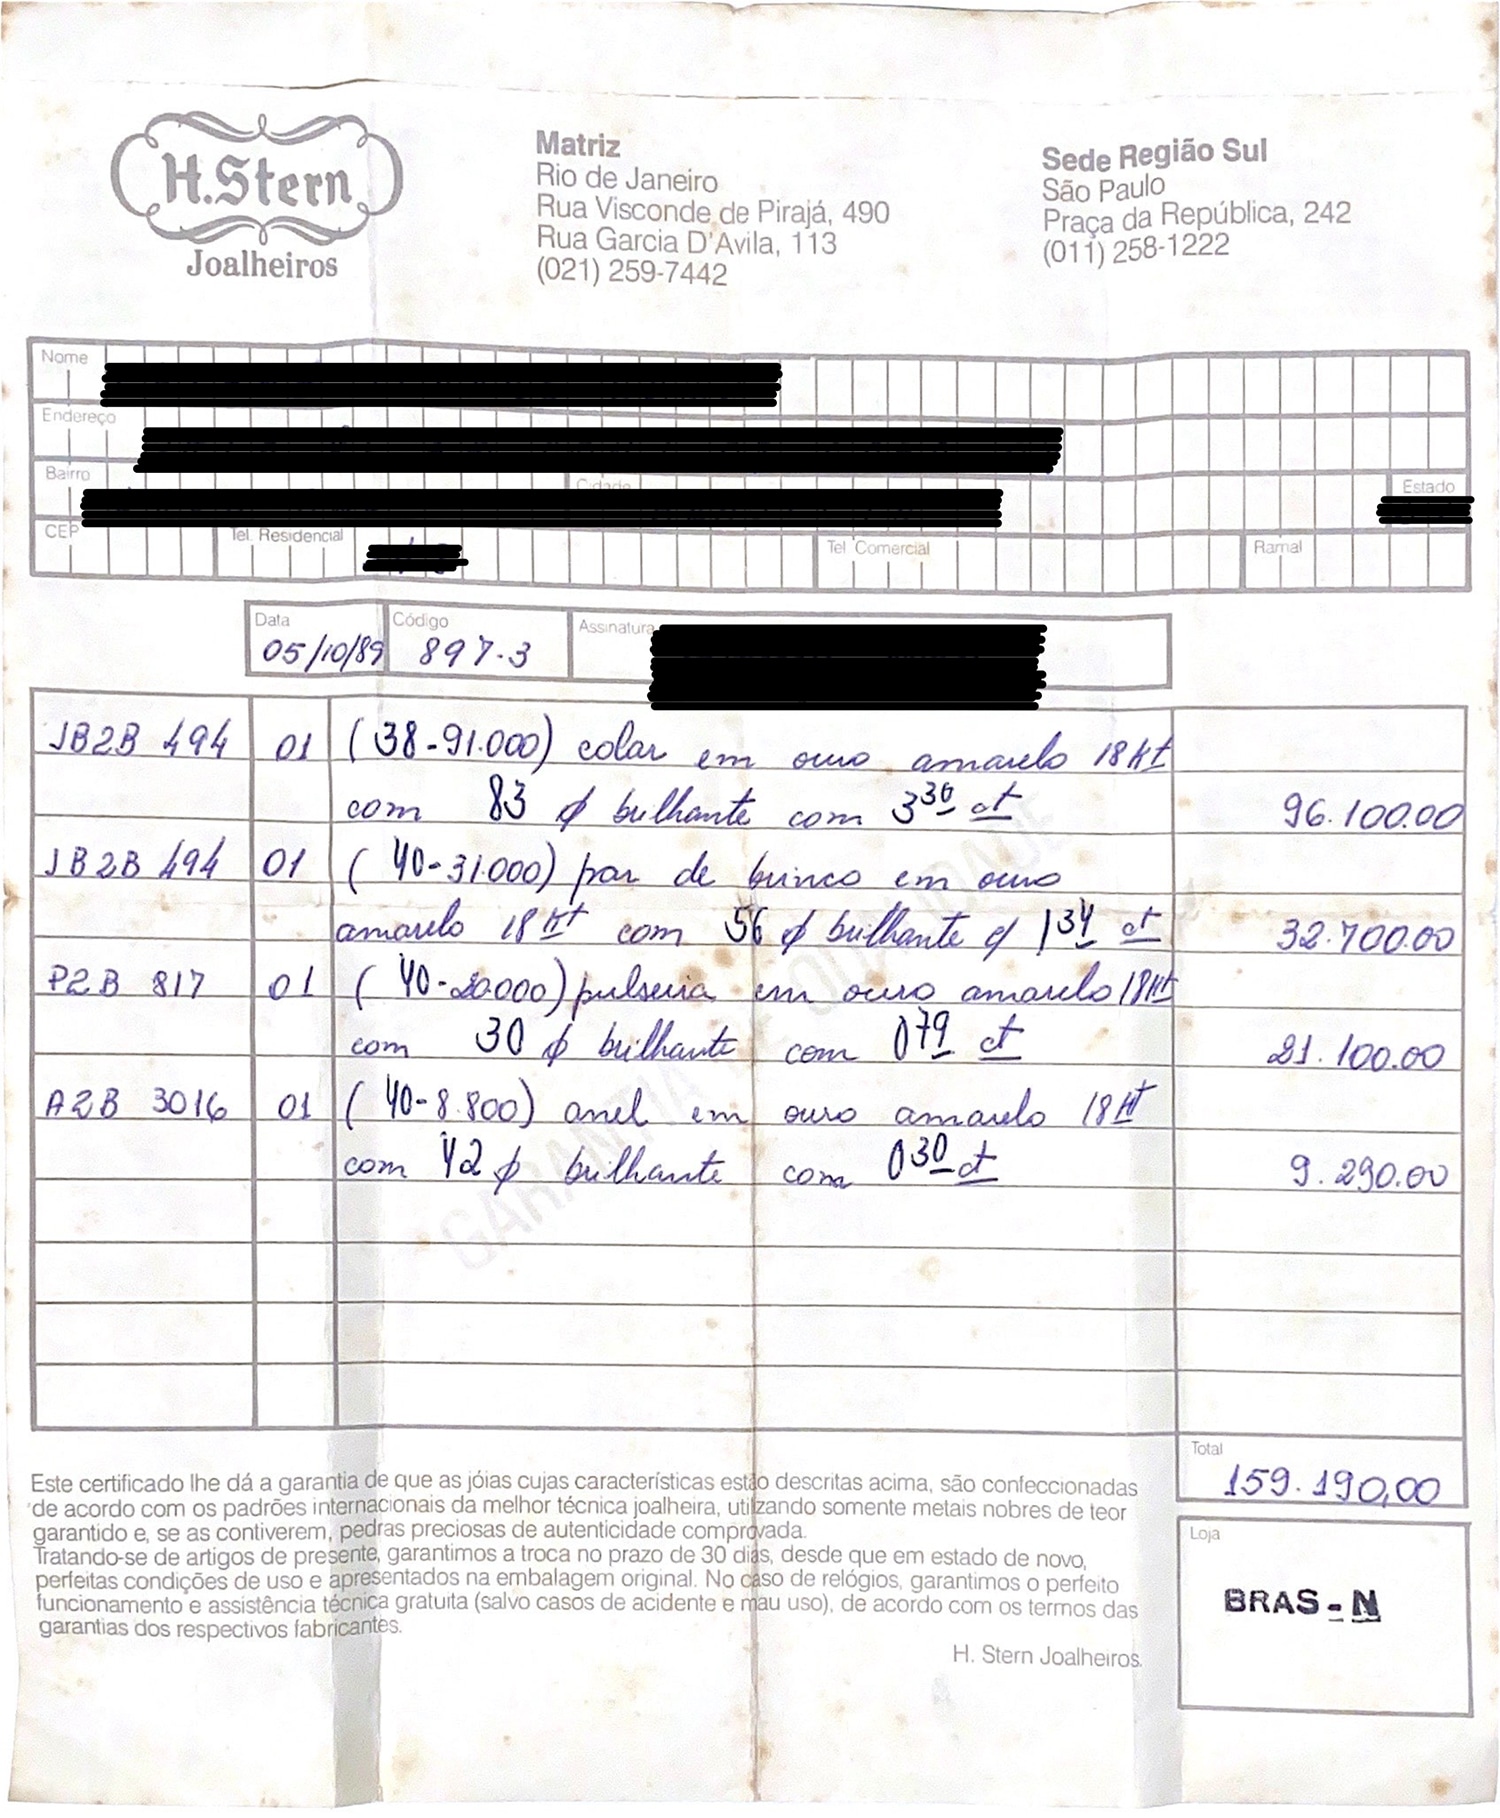 H.Stern
Joalheiros
Matriz
Rio de Janeiro
Rua Visconde de Pirajá, 490
Rua Garcia D'Avila, 113
(021) 259-7442
Sede Região Sul
São Paulo
Praça da República, 242
(011) 258-1222
Nome
Endereço
Bairro
Cidade
Estado
CEP
Tel. Residencial
Tel. Comercial
Ramal
Data
05/10/89
Código
897-3
Assinatura
JB2B 494 01 (38-91.000) colar em ouro amarelo 18 Kt
com 83 ϕ brilhante com 3 30 ct 96.100.00
JB2B 494 01 (40-31.000) par de brinco em ouro
amarelo 18 Kt com 56 ϕ brilhante c/ 1 34 ct 32.700.00
P2B 817 01 (40-20.000) pulseira em ouro amarelo 18 Kt
com 30 ϕ brilhante com 0 79 ct 21.100.00
A2B 3016 01 (40-8.800) anel em ouro amarelo 18 Kt
com 42 ϕ brilhante com 0 30 ct 9.290.00
GARANTIA DE QUALIDADE
Total
159.190,00
Este certificado lhe dá a garantia de que as jóias cujas características estão descritas acima, são confeccionadas
de acordo com os padrões internacionais da melhor técnica joalheira, utilizando somente metais nobres de teor
garantido e, se as contiverem, pedras preciosas de autenticidade comprovada.
Tratando-se de artigos de presente, garantimos a troca no prazo de 30 dias, desde que em estado de novo,
perfeitas condições de uso e apresentados na embalagem original. No caso de relógios, garantimos o perfeito
funcionamento e assistência técnica gratuita (salvo casos de acidente e mau uso), de acordo com os termos das
garantias dos respectivos fabricantes.
H. Stern Joalheiros.
Loja
BRAS-N